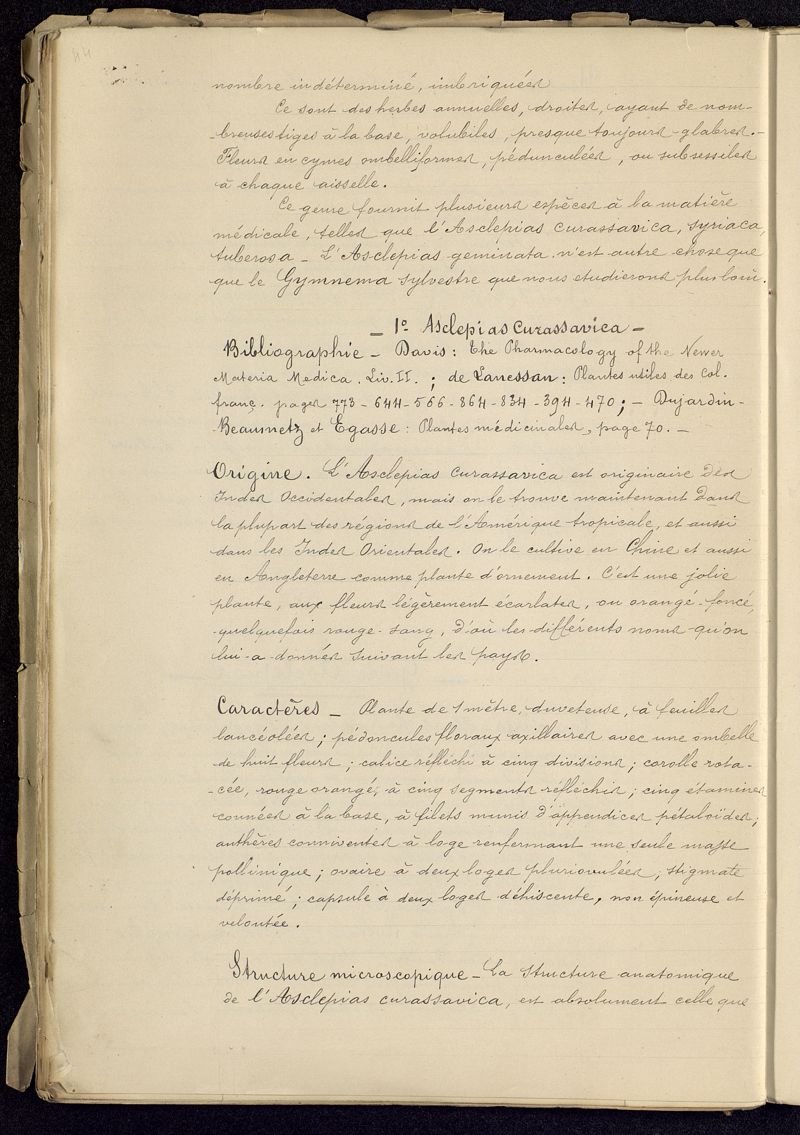 44
nombre indéterminé, imbriquées
Ce sont des herbes annuelles, droites, ayant de nom-
-breuses tiges à la base, volubiles, presque toujours glabres.-
Fleurs en cymes ombelliformes, pédunculées, ou subsessiles
à chaque aisselle.
Ce genre fournit plusieurs espèces à la matière
médicale, telles que l'Asclepias curassavica, syriaca,
tuberosa - L'Asclepias geminata n'est autre chose que
que le Gymnema sylvestre que nous etudierons plus loin.
- 1º Asclepias Curassavica -
Bibliographie - Davis: the Pharmacology of the Newer
Materia Medica. Liv. II. ; de Lanessan: Plantes utiles des Col.
franç. pages 773 - 644 - 566 - 864 - 834 - 394 - 470; - Dujardin-
Beaumetz et Egasse: Plantes médicinales, page 70. -
Origine. L'Asclepias Curassavica est originaire des
Indes Occidentales, mais on le trouve maintenant dans
la plupart des régions de l'Amérique tropicale, et aussi
dans les Indes Orientales. On le cultive en Chine et aussi
en Angleterre comme plante d'ornement. C'est une jolie
plante, aux fleurs légèrement écarlates, ou orangé-foncé,
quelquefois rouge-sang, d'où les différents noms qu'on
lui-a donnés suivant les pays.
Caractères - Plante de 1 mètre, duveteuse, à feuilles
lancéolées; pédoncules floraux axillaires avec une ombelle
de huit fleurs; calice réfléchi à cinq divisions; corolle rota-
-cée, rouge orangé, à cinq segments réfléchis; cinq étamines
connées à la base, à filets munis d'appendices pétaloïdes;
anthères conniventes à loge renfermant une seule masse
pollinique; ovaire à deux loges pluriovulées; stigmate
déprimé; capsule à deux loges déhiscente, non épineuse et
veloutée.
Structure microscopique - La structure anatomique
de l'Asclepias curassavica, est absolument celle que